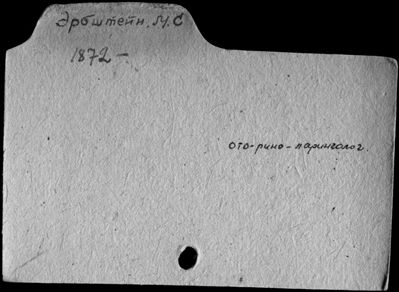 Эрбштейн, М.С
1872 –
ото-рино-ларинголог.